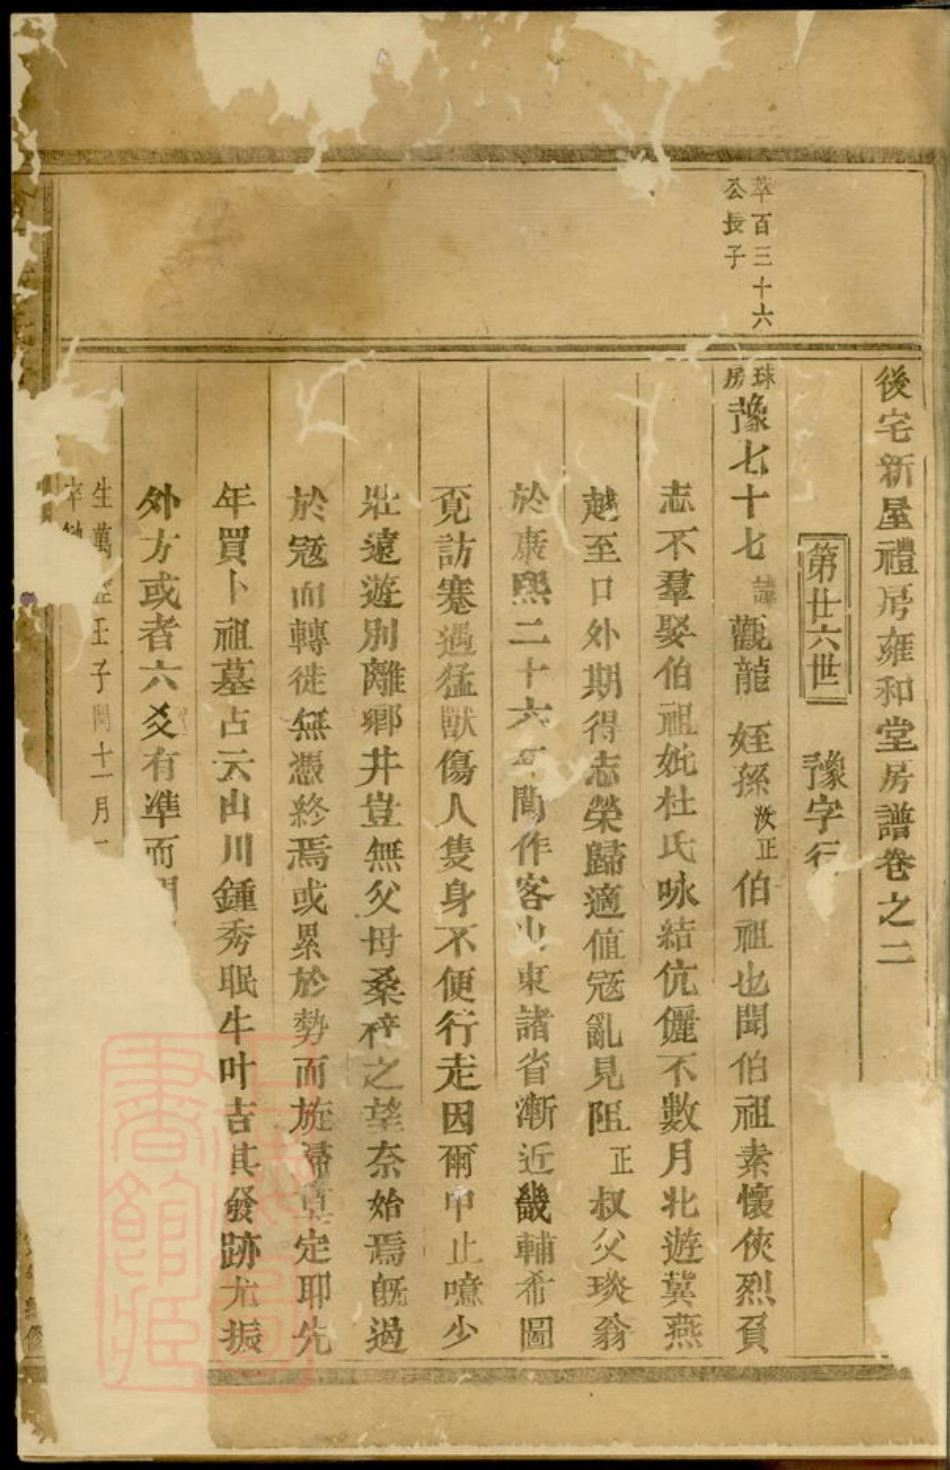 後宅新屋禮房雍和堂房譜卷之二
第廿六世 豫字行
萃百三十六
公長子
球房豫七十七諱觀龍 姪孫汝正伯祖也聞伯祖素懷俠烈負
志不羣娶伯祖妣杜氏咏結伉儷不數月北遊冀燕
越至口外期得志榮歸適值寇亂見阻正叔父琰翁
於康熙二十六年間作客山東諸省漸近畿輔希圖
覔訪塞遇猛獸傷人隻身不便行走因爾中止噫少
壯遠遊別離鄉井豈無父母桑梓之望奈始焉旣過
於寇而轉徙無憑終焉或累於勢而旋歸莫定耶先
年買卜祖墓占云山川鍾秀眠牛叶吉其發跡尤振
外方或者六爻有準而
生萬歷壬子閏十一月
卒
修